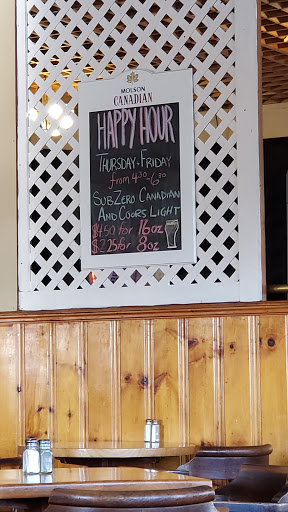 MOLSON
CANADIAN
HAPPY HOUR
THURSDAY-FRIDAY
from 4:30-6:30
SUBZERO CANADIAN
AND COORS LIGHT
$4.50 for 16oz
$2.25 for 8oz